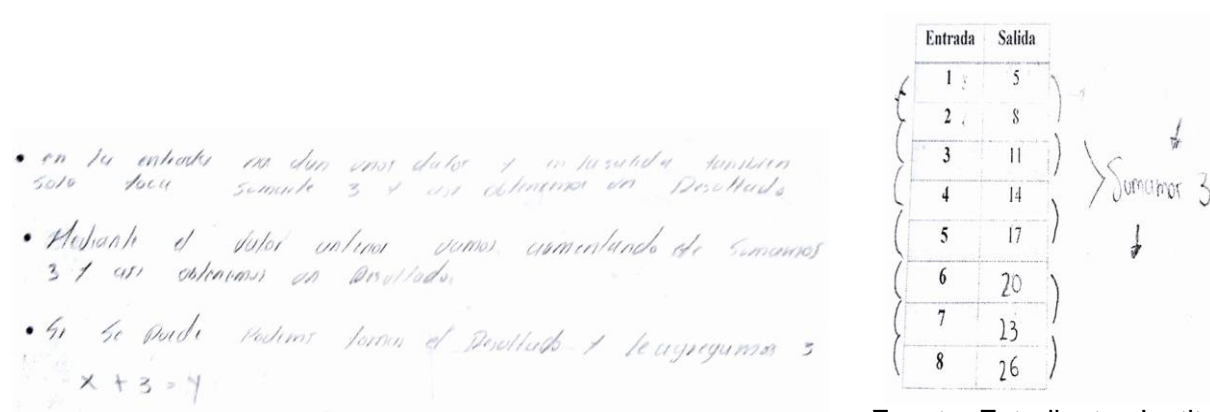 • en la entrada nos dan unos datos y en la salida tambien
solo toca sumarle 3 y asi obtenemos un Resultado
• Mediante el dator anterior vamos aumentando de sumamos
3 y asi obtenemos un Resultado.
• Si se puede Podemos tomar el Resultado y le agregamos 3
x + 3 = y
Entrada Salida
1 5
2 8
3 11
4 14
5 17
6 20
7 23
8 26
Sumamos 3